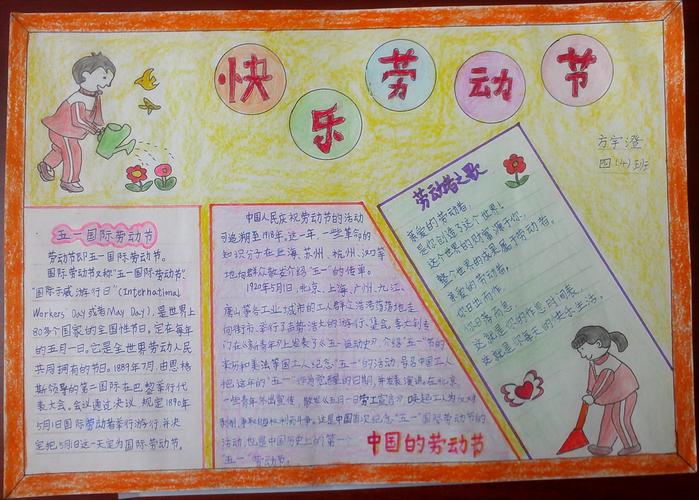 快乐劳动节
方宇澄
四(4)班
五一国际劳动节
劳动节即五一国际劳动节。
国际劳动节又称"五一国际劳动节"
"国际示威游行日"(International
Workers Day或者May Day),是世界上
80多个国家的全国性节日。定在每年
的五月一日。它是全世界劳动人民
共同拥有的节日。1889年7月,由恩格
斯领导的第二国际在巴黎举行代
表大会。会议通过决议,规定1890年
5月1日国际劳动者举行游行,并决
定把5月1日这一天定为国际劳动节。
中国人民庆祝劳动节的活动
可追溯至1918年。这一年,一些革命的
知识分子在上海、苏州、杭州、汉口等
地向群众散发介绍"五一"的传单。
1920年5月1日,北京、上海、广州、九江、
唐山等各工业城市的工人群众浩浩荡荡地走
向街市,举行了声势浩大的游行、集会。李大钊专
门在《新青年》上发表了《五一运动史》,介绍"五一"节的
来历和美法等国工人纪念"五一"的活动,号召中国工人
把这年的"五一"作为觉醒的日期,并发表演说。在北京,
一些青年外出宣传,散发《五月一日劳工宣言》,唤起工人为反对
剥削、争取自己权利而斗争。这是中国首次纪念"五一"国际劳动节的
活动,也是中国历史上的第一个
"五一"劳动节。
中国的劳动节
劳动者之歌
亲爱的劳动者,
是你创造了这个世界!
这个世界的财富源于你,
整个世界的成果属于劳动者。
亲爱的劳动者,
你日出而作,
你日落而息,
这就是你的作息时间表,
这就是你每天的快乐生活。